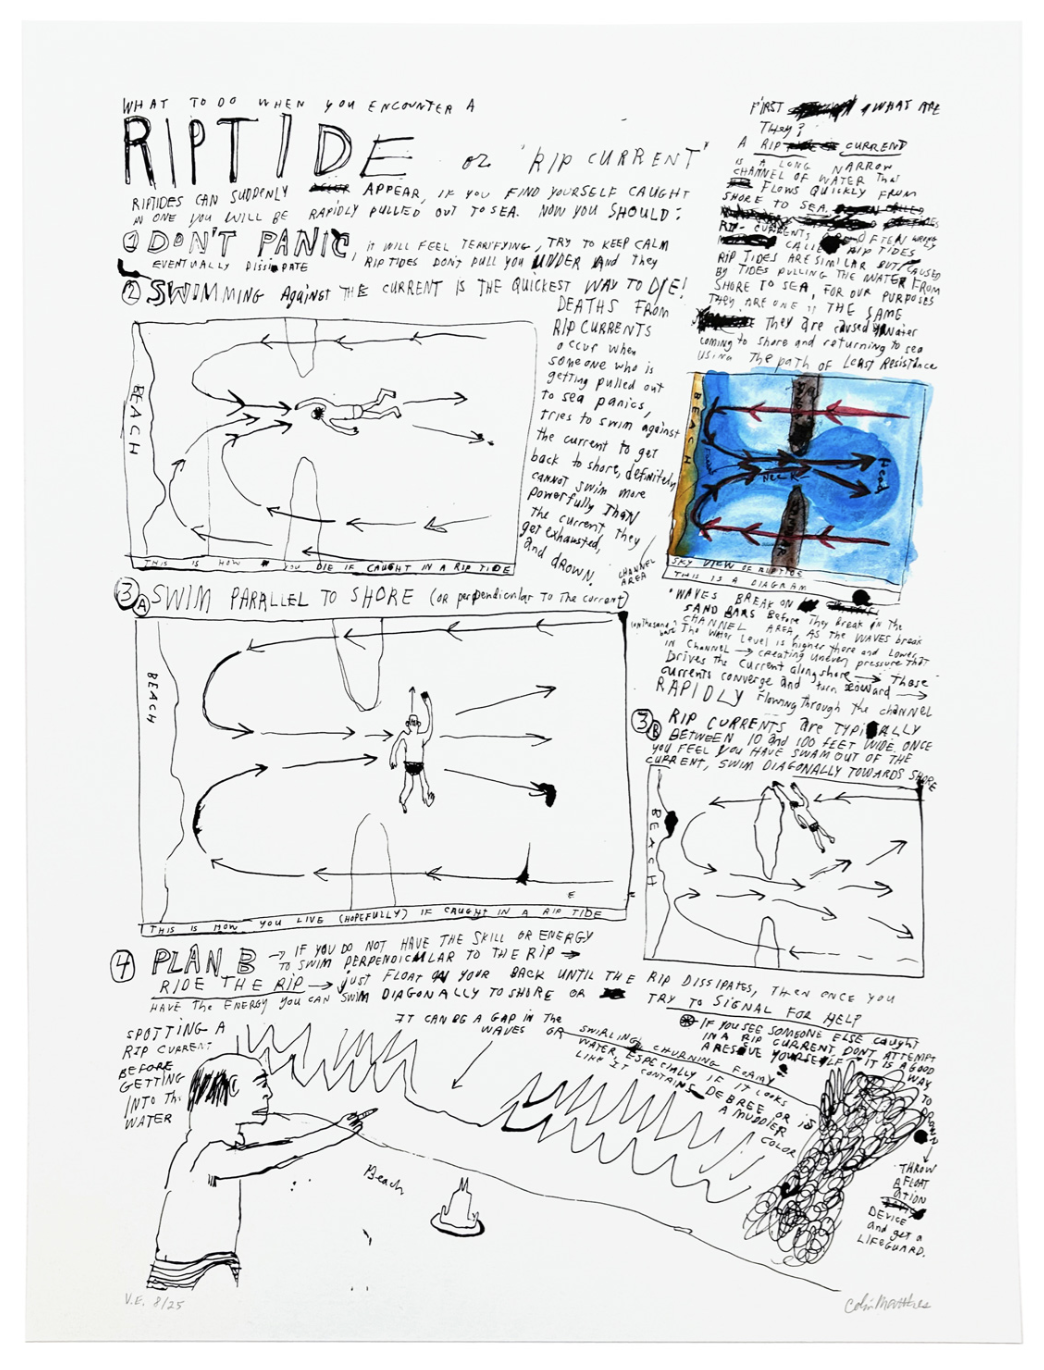 WHAT TO DO WHEN YOU ENCOUNTER A
RIPTIDE OR "RIP CURRENT"
RIPTIDES CAN SUDDENLY APPEAR, IF YOU FIND YOURSELF CAUGHT
IN ONE YOU WILL BE RAPIDLY PULLED OUT TO SEA. NOW YOU SHOULD:
1 DON'T PANIC, it WILL FEEL TERRIFYING, TRY TO KEEP CALM
RIPTIDES DON'T PULL YOU UNDER And they
EVENTUALLY DISSIPATE
2 SWIMMING Against THE CURRENT IS THE QUICKEST WAY TO DIE!
DEATHS FROM
RIP CURRENTS
occur when
someone who is
getting pulled out
to sea panics,
tries to swim against
the current to get
back to shore, definitely
cannot swim more
powerfully THAN
The current, they
get exhausted,
and drown.
BEACH
THIS IS HOW YOU DIE IF CAUGHT IN A RIP TIDE
FIRST WHAT ARE
They?
A RIP CURRENT
is A LONG NARROW
CHANNEL OF WATER That
FLOWS QUICKLY FROM
SHORE TO SEA.
RIP-CURRENTS OFTEN
CALLED RIP TIDES
RIP TIDES ARE SIMILAR BUT CAUSED
BY TIDES PULLING THE WATER FROM
SHORE TO SEA, FOR OUR PURPOSES
They ARE ONE IN THE SAME
They are caused by Water
coming to shore and returning to sea
USING The path of Least Resistance
BEACH
NECK
Head
SKY VIEW OF RIPTIDE
THIS IS A DIAGRAM
CHANNEL
AREA
WAVES BREAK ON
SAND BARS Before They break in the
CHANNEL AREA, AS the WAVES break
The Water Level is higher there and Lower
in Channel → creating uneven pressure that
Drives the Current alongshore → Those
currents converge and turn seaward →
RAPIDLY Flowing through the channel
3A SWIM PARALLEL TO SHORE (OR perpendicular To The current)
BEACH
E
THIS IS HOW YOU LIVE (HOPEFULLY) IF CAUGHT IN A RIP TIDE
3B RIP CURRENTS are TYPICALLY
BETWEEN 10 and 100 FEET WIDE, ONCE
YOU FEEL YOU HAVE SWAM OUT OF THE
CURRENT, SWIM DIAGONALLY TOWARDS SHORE
BEACH
4 PLAN B → IF YOU DO NOT HAVE THE SKILL OR ENERGY
TO SWIM PERPENDICULAR TO THE RIP →
RIDE THE RIP → JUST FLOAT ON YOUR BACK UNTIL THE RIP DISSIPATES, THEN ONCE YOU
HAVE The ENERGY YOU CAN SWIM DIAGONALLY TO SHORE OR TRY TO SIGNAL FOR HELP
SPOTTING A
RIP CURRENT
BEFORE
GETTING
INTO The
WATER
IT CAN BE A GAP IN The
WAVES OR SWIRLING CHURNING FOAMY
WATER, ESPECIALLY IF IT LOOKS
LIKE IT CONTAINS DEBREE OR is
A MUDDIER
COLOR
Beach
IF YOU SEE SOMEONE ELSE Caught
IN A RIP CURRENT, DON'T ATTEMPT
A RESCUE YOURSELF → IT IS A GOOD
WAY
TO
DROWN
THROW
A FLOAT
ATION
DEVICE
and get a
LIFEGUARD.
V.E. 8/25